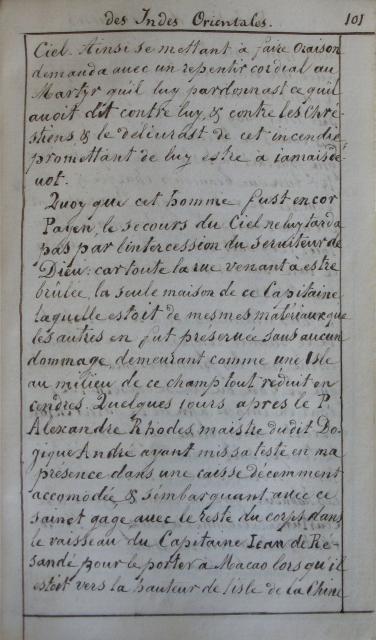 des Indes Orientales. 101
Ciel. Ainsi se mettant à faire oraison
demanda avec un repentir cordial au
Martyr quil luy pardonnast ce quil
auoit dit contre luy, & contre les Chré-
stiens, & le deliurast de cet incendie,
promettant de luy estre à iamais dé-
uot.
Quoy que cet homme fust encor
Payen, le secours du Ciel ne luy tarda
pas par l'intercession du seruiteur de
Dieu: car toute la rue venant à estre
brûlée, la seule maison de ce Capitaine
laquelle estoit de mesmes matériaux que
les autres en fut préseruée sans aucun
dommage, demeurant comme une Isle
au milieu de ce champ tout réduit en
cendres. Quelques iours apres le P.
Alexandre Rhodes, maistre dudit Do-
gique André ayant mis sa teste en ma
présence dans une caisse décemment
accomodée & s'embarquant auec ce
sainct gage auec le reste du corps dans
le vaisseau du Capitaine Iean de Ré-
sandé pour le porter à Macao lors qu'il
estoit vers la hauteur de l'isle de la Chine